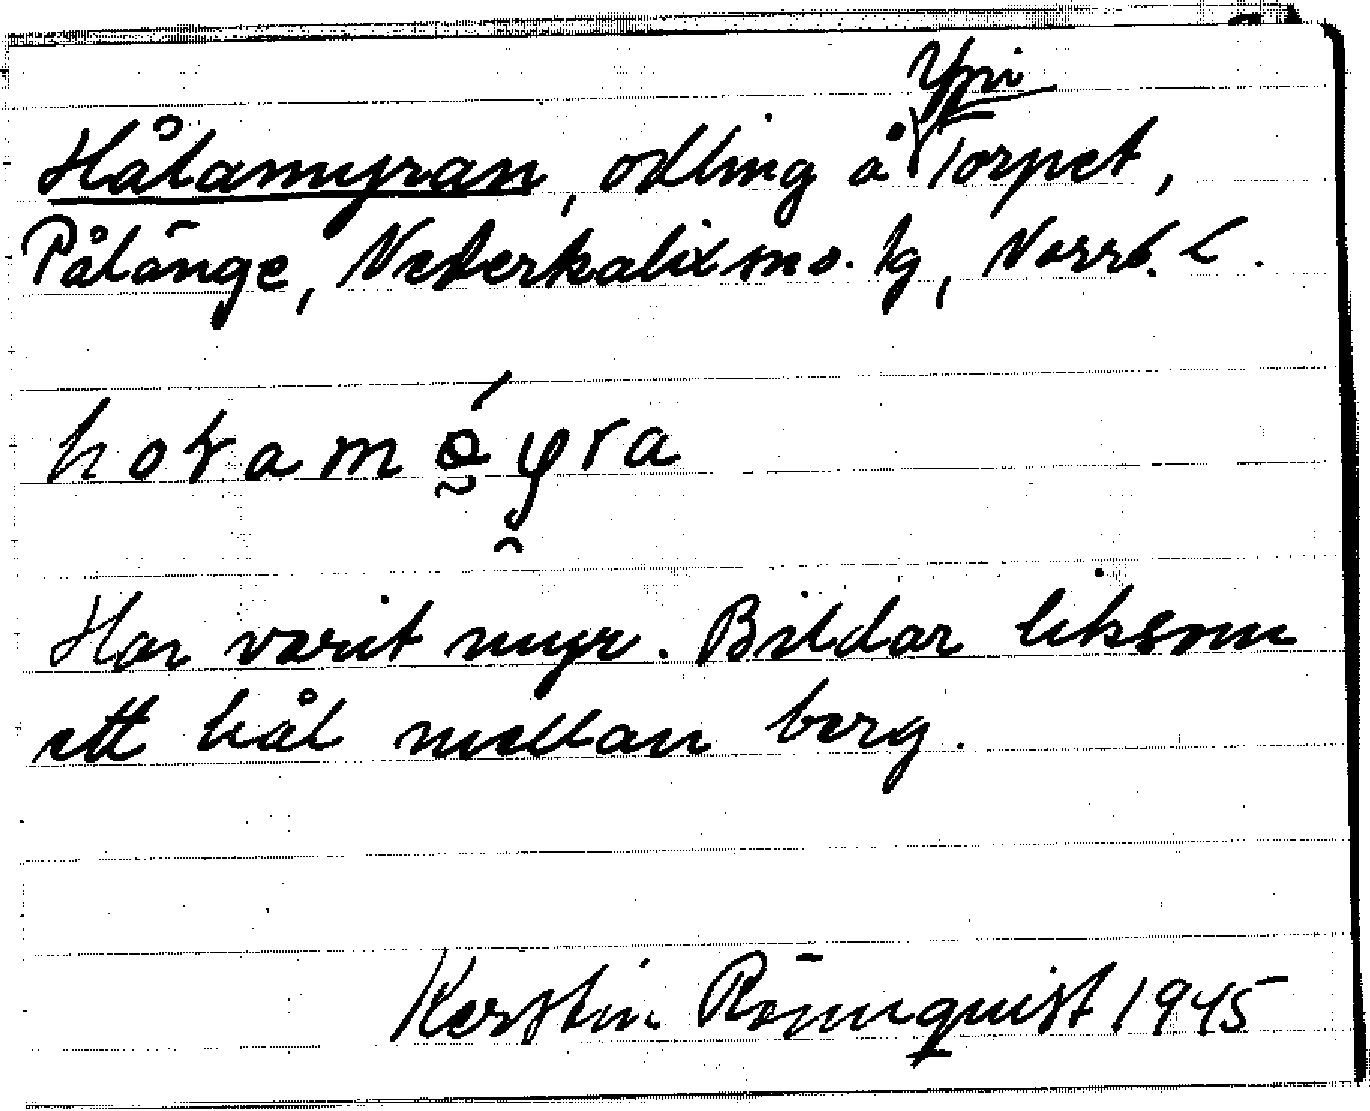 Hålamyran, odling å Ypi Torpet,
Pålänge, Nederkalix sns. tg, Norrb. L.
horamǿyra
Har varit myr. Bildar liksom
ett hål mellan berg.
Kerstin Rönnquist 1945